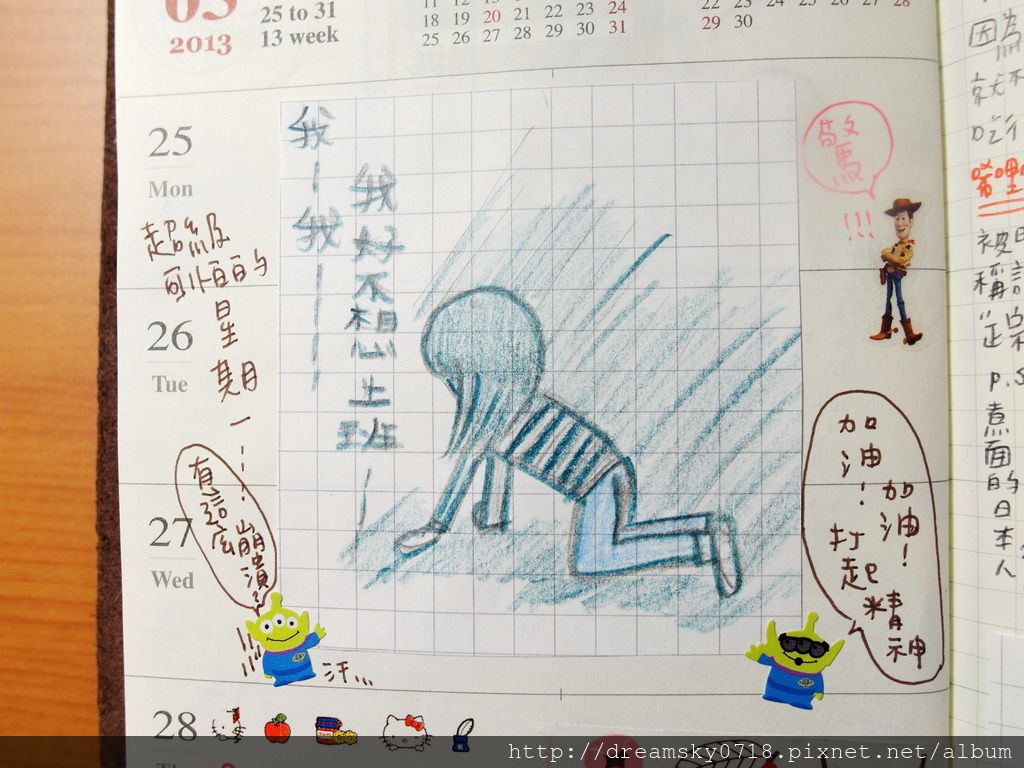 03
2013
25 to 31
13 week
11 12 13 14 15 16 17
18 19 20 21 22 23 24
25 26 27 28 29 30 31
22 23 24 25 26 27 28
29 30
25
Mon
超級
的
星
期
一...!
26
Tue
我—我————
我好不想上班—
驚
!!!
有這麼崩潰?
27
Wed
!!!
汗...
加油!
加油!
打起精神
28
因為
就
吃
被
稱
p.s
煮面的日本人
http://dreamsky0718.pixnet.net/album